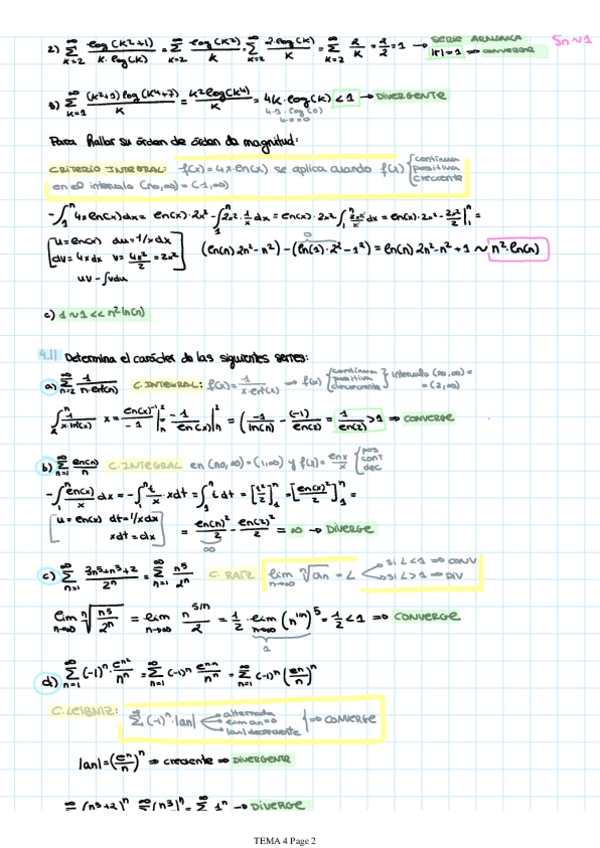 2) ∞∑k=2 log(k²+1)/(k·log(k)) = ∞∑k=2 log(k²)/k = ∞∑k=2 2·log(k)/k = ∞∑k=2 2/k = 2/2 = 1 → SERIE ARMÓNICA Sn ~ 1
|r|=1 → CONVERGE
∞∑k=1 (k²+9)log(k⁴+7)/k = k²log(k⁴)/k = 4k·log(k) < 1 → DIVERGENTE
4·1·log(0)
Para hallar su orden de orden de magnitud:
CRITERIO INTEGRAL: f(x) = 4x·ln(x) se aplica cuando f(x) { continua positiva creciente
en el intervalo (n₀,∞) = (1,∞)
-∫₁ⁿ 4x ln(x)dx = ln(x)·2x² - ∫₁ⁿ 2x²·1/x dx = ln(x)·2x² ∫₁ⁿ 2x²/x dx = ln(x)·2x² - 2x²/2 |₁ⁿ =
[u = ln(x) du = 1/x dx
dv = 4x dx v = 4x²/2 = 2x²]
(ln(n)2n² - n²) - (ln(1)·2² - 1²) = ln(n)2n² - n² + 1 ~ n²·ln(n)
uv - ∫vdu
c) 1 ~ 1 << n² ln(n)
4.11 Determina el carácter de las siguientes series:
a) ∞∑n=2 1/(n·ln²(n)) C. INTEGRAL: f(x) = 1/(x·ln²(x)) → f(x) { continua positiva decreciente } intervalo (n₀,∞) =
= (2,∞)
∫₂ⁿ 1/(x·ln²(x)) x = ln(x)⁻¹/-1 |ⁿ = -1/ln(x) |ⁿ = (-1/ln(n) - (-1)/ln(2)) = 1/ln(2) > 1 ⇒ CONVERGE
b) ∞∑n=1 ln(n)/n C. INTEGRAL en (n₀,∞) = (1,∞) y f(x) = lnx/x { pos cont dec
-∫₁ⁿ ln(x)/x dx = -∫₁ⁿ t/x · xdt = ∫₁ⁿ t dt = [t²/2]₁ⁿ = [ln(x)²/2]₁ⁿ =
[u = ln(x) dt = 1/x dx
xdt = dx]
= ln(n)²/2 - ln(2)²/2 = ∞ → DIVERGE
∞
c) ∞∑n=1 (3n⁵+n³+2)/2ⁿ = ∞∑n=1 n⁵/2ⁿ C. RAÍZ lim n→∞ ⁿ√an = L si L<1 ⇒ CONV
si L>1 ⇒ DIV
lim n→∞ ⁿ√(n⁵/2ⁿ) = lim n→∞ n^(5/n)/2 = 1/2 · lim n→∞ (n^(1/n))⁵ = 1/2 < 1 ⇒ CONVERGE
1
d) ∞∑n=1 (-1)ⁿ · e^(n²)/nⁿ = ∞∑n=1 (-1)ⁿ e^(n·n)/nⁿ = ∞∑n=1 (-1)ⁿ (eⁿ/n)ⁿ
C. LEIBNIZ: ∑(-1)ⁿ·|an| alternada lim an=0 |an| decreciente } ⇒ CONVERGE
|an| = (eⁿ/n)ⁿ ⇒ creciente ⇒ DIVERGENTE
∞ (n³+2)ⁿ ∞∑(n³)ⁿ ∞∑ 1ⁿ → DIVERGE
TEMA 4 Page 2